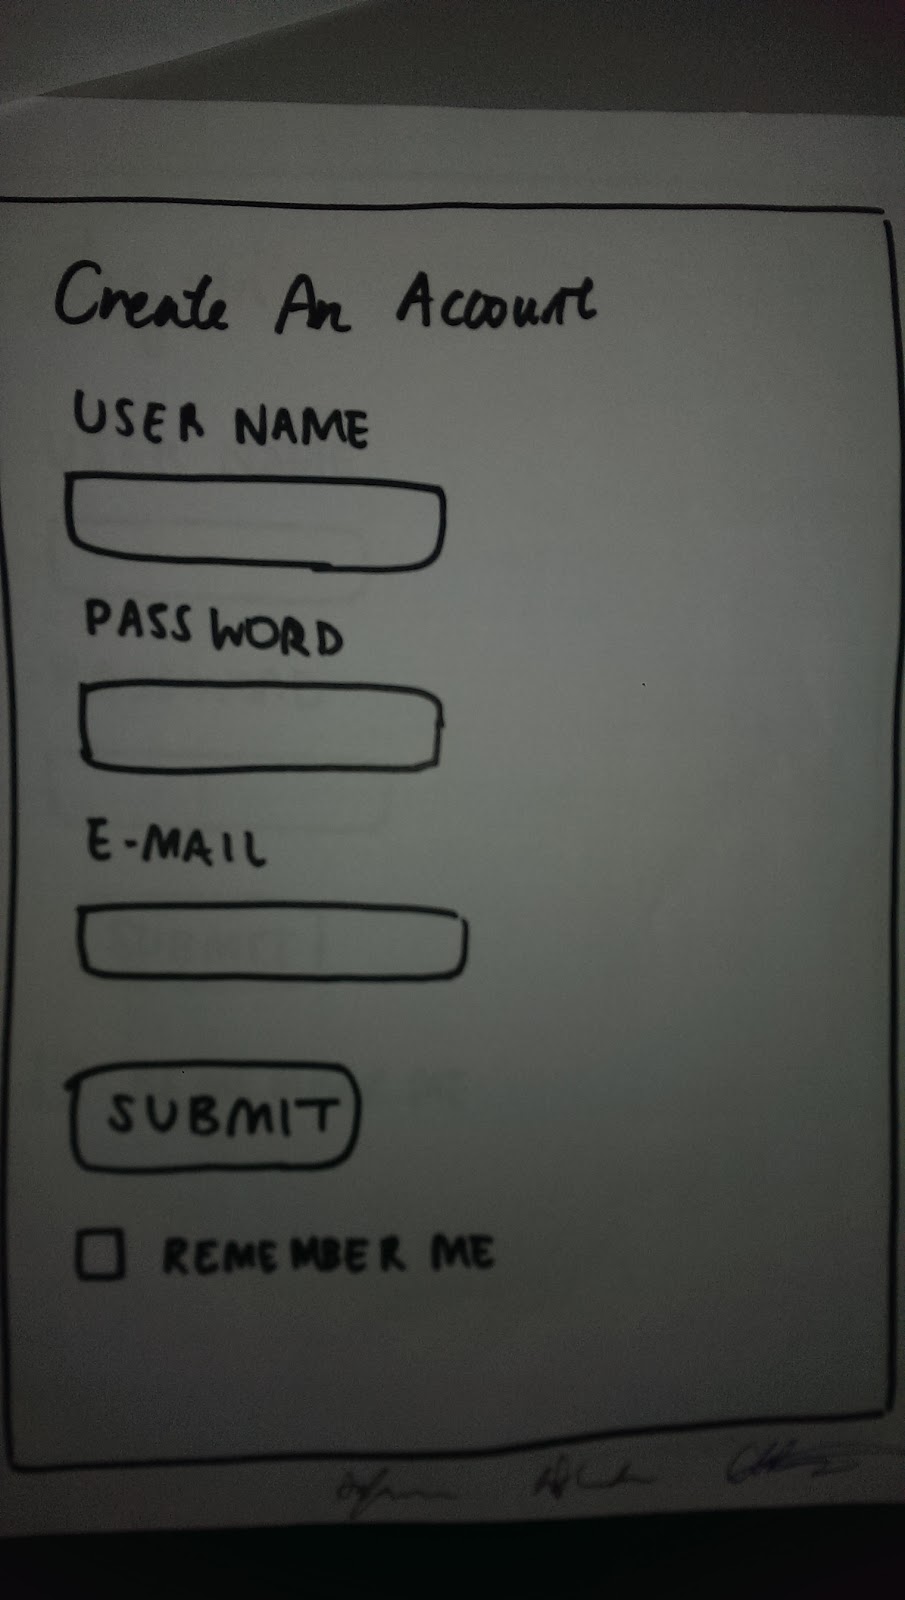 Create An Account
USER NAME
PASSWORD
E-MAIL
SUBMIT
REMEMBER ME